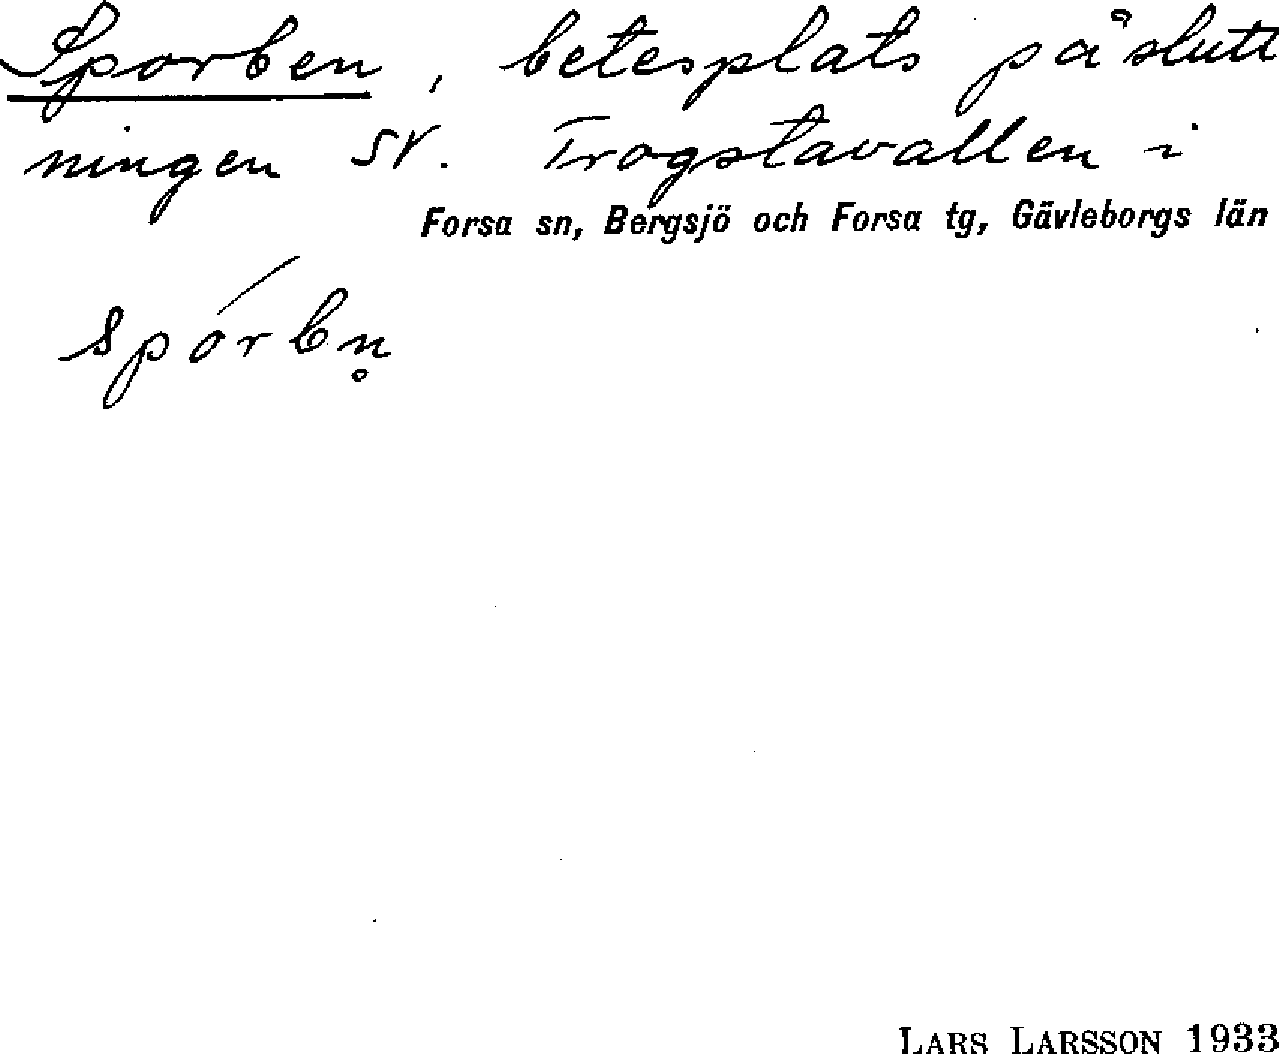 Sporben, betesplats på slutt
ningen SV. Trogstavallen i
Forsa sn, Bergsjö och Forsa tg, Gävleborgs län
spórbn̥
LARS LARSSON 1933